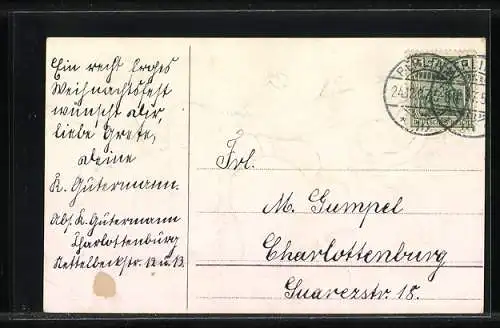 Ein recht frohes
Weihnachtsfest
wünscht dir,
liebe Grete,
deine
K. Gutermann.
Abs. K. Gutermann
Charlottenburg
Nettelbeckstr. 12 u. 13.
Frl.
M. Gumpel
Charlottenburg
Suarezstr. 18.
BERLIN
24.12.11